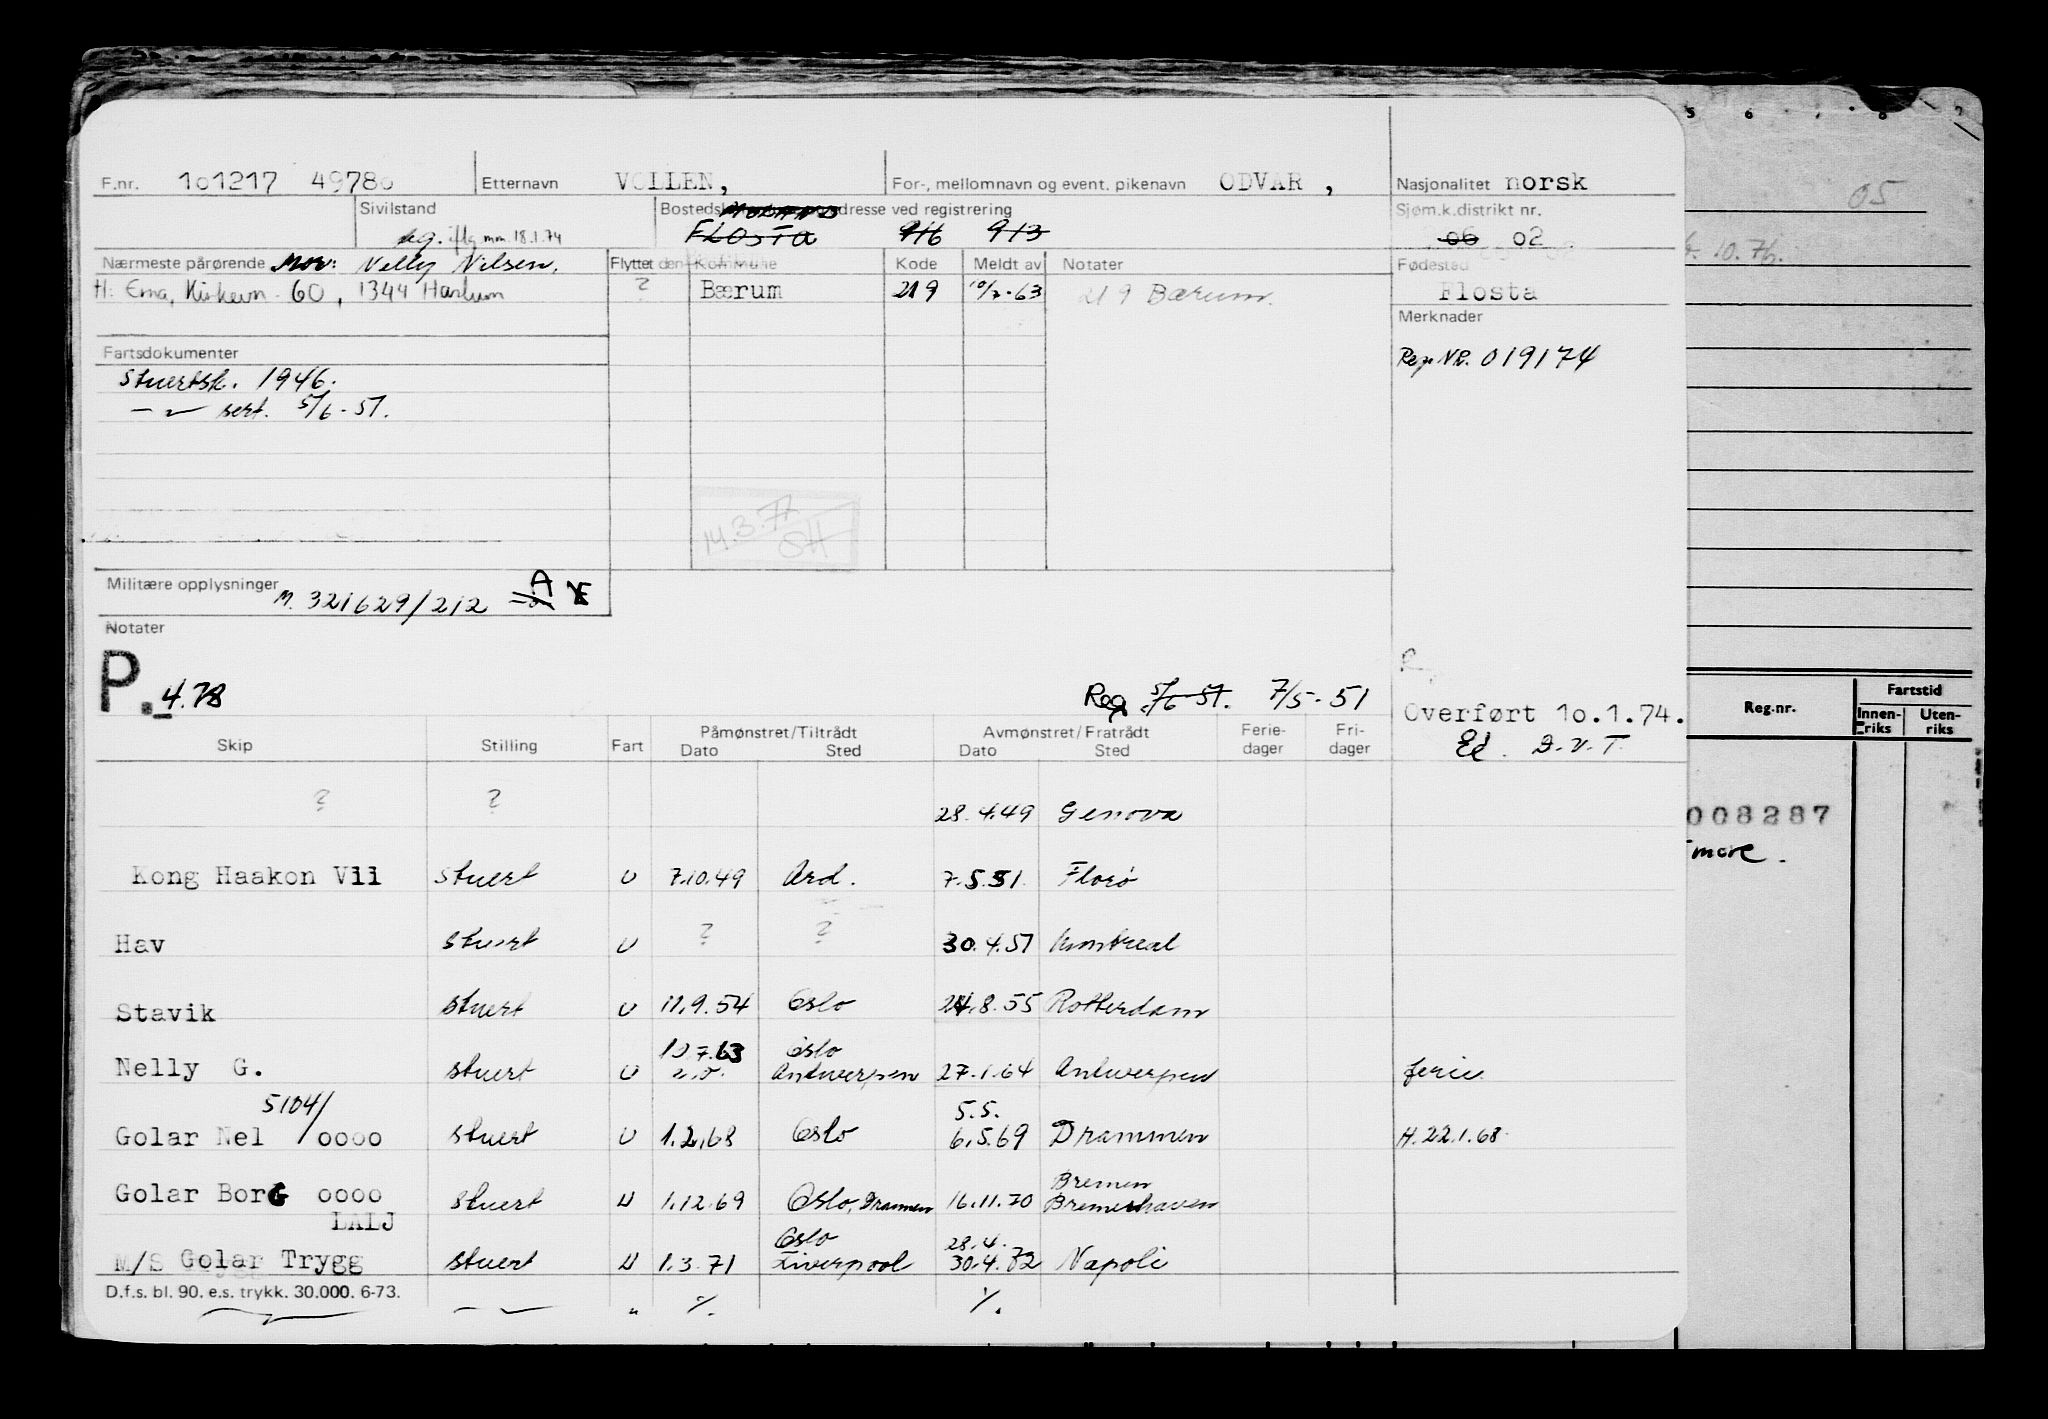 F.nr. 101217 49780 Etternavn VOLLEN, For-, mellomnavn og event. pikenavn ODVAR , Nasjonalitet norsk
Sivilstand Bostedsk adresse ved registrering Sjøm.k.distrikt nr.
ug. iflg mm. 18.1.74 FLOSTA 916 913 06 02
Nærmeste pårørende Mor: Nelly Nilsen. Flyttet den Kommune Kode Meldt av Notater Fødested
H. Erna, Kirkevn. 60, 1344 Haslum ? Bærum 219 10/7-63 219 Bærum. Flosta
Merknader
Fartsdokumenter Reg NR. 019174
Stuertsk. 1946.
sert. 5/6-51.
14.3.77
SH
Militære opplysninger M. 321629/212 A
Notater
P. 4.78 Reg 5/6-51. 7/5-51
Overført 10.1.74.
Ed. D.V.T.
Skip Stilling Fart Påmønstret/Tiltrådt Avmønstret/Fratrådt Ferie-dager Fri-dager
Dato Sted Dato Sted
? ? 28.4.49 Genova
Kong Haakon Vii Stuert U 7.10.49 Ard. 7.5.51. Florø
Hav Stuert U ? ? 30.4.51 Montreal
Stavik Stuert U 11.9.54 Oslo 24.8.55 Rotterdam
10.7.63 Oslo
Nelly G. Stuert U Antwerpen 27.1.64 Antwerpen ferie
5104/ 5.5.
Golar Nel /oooo Stuert U 1.2.68 Oslo 6.5.69 Drammen H.22.1.68.
Bremen
Golar BorG oooo Stuert U 1.12.69 Oslo, Drammen 16.11.70 Bremerhaven
LAIJ
Oslo 28.4.
M/S Golar Trygg Stuert U 1.3.71 Liverpool 30.4.72 Napoli
D.f.s. bl. 90. e.s. trykk. 30.000. 6-73.
05
10.76.
Reg.nr. Fartstid
Innen-riks Uten-riks
008287